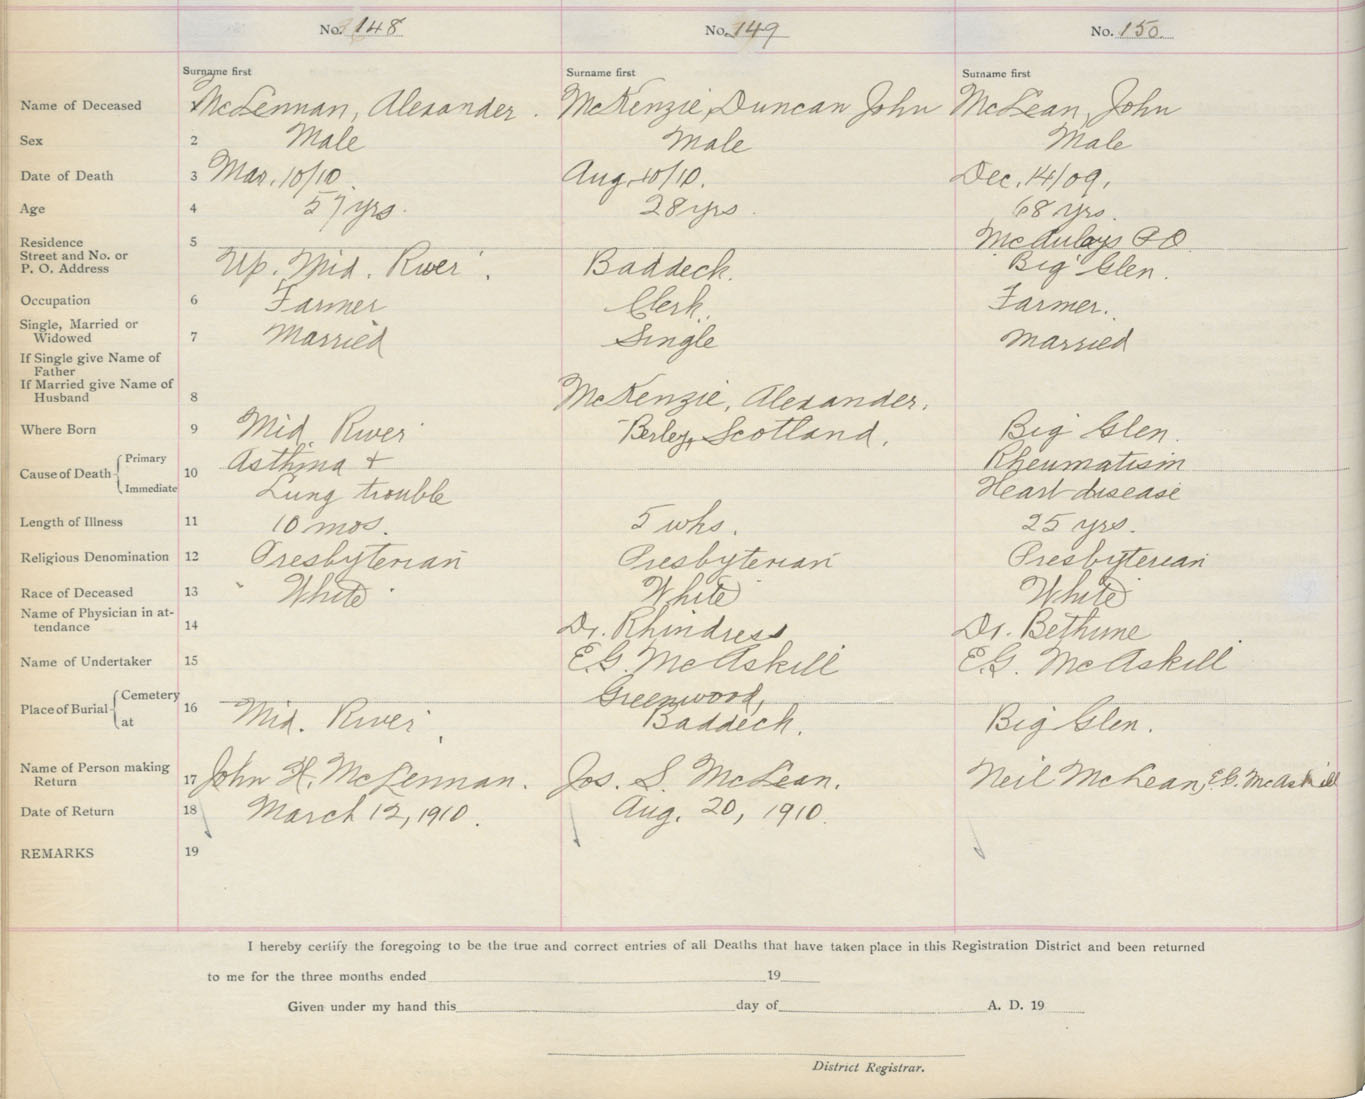 No. 148 No. 149 No. 150
Surname first Surname first Surname first
Name of Deceased 1 McLennan, Alexander. McKenzie, Duncan John McLean, John
Sex 2 Male Male Male
Date of Death 3 Mar. 10/10. Aug. 10/10. Dec. 14/09.
Age 4 57 yrs. 28 yrs. 68 yrs.
Residence 5 McAulays P.O.
Street and No. or
P. O. Address Up. Mid. River. Baddeck. Big Glen.
Occupation 6 Farmer Clerk. Farmer.
Single, Married or
Widowed 7 Married Single Married
If Single give Name of
Father
If Married give Name of
Husband 8 McKenzie, Alexander.
Where Born 9 Mid. River Scotland. Big Glen.
Cause of Death Primary 10 Asthma + Rheumatism
Immediate Lung trouble Heart disease
Length of Illness 11 10 mos. 5 wks. 25 yrs.
Religious Denomination 12 Presbyterian Presbyterian Presbyterian
Race of Deceased 13 White White White
Name of Physician in at-
tendance 14 Dr. Rhindress Dr. Bethune
Name of Undertaker 15 E.G. McAskill E.G. McAskill
Place of Burial Cemetery 16 Greenwood,
at Mid. River. Baddeck. Big Glen.
Name of Person making
Return 17 John H. McLennan. Jos. S. McLean. Neil McLean, E.G. McAskill
Date of Return 18 March 12, 1910. Aug. 20, 1910.
REMARKS 19
I hereby certify the foregoing to be the true and correct entries of all Deaths that have taken place in this Registration District and been returned
to me for the three months ended 19
Given under my hand this day of A. D. 19
District Registrar.